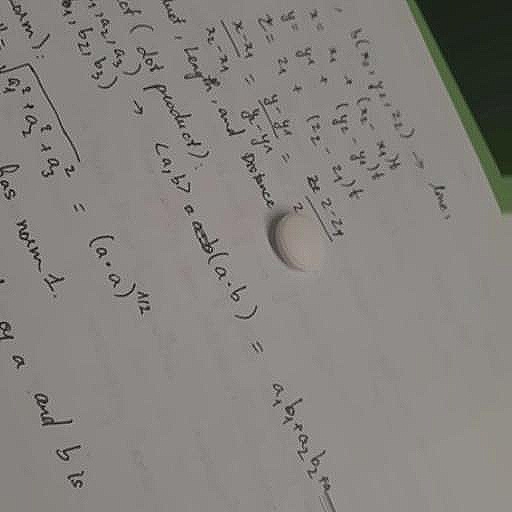 b(x₂, y₂, z₂) →
x = x₁ + (x₂ - x₁)t
y = y₁ + (y₂ - y₁)t
z = z₁ + (z₂ - z₁)t
x-x₁ / x₂-x₁ = y-y₁ / y₂-y₁ = z-z₁
length, and Distance
(dot product):
, a₂, a₃)
b₁, b₂, b₃) → <a,b> = (a·b) = a₁b₁+a₂b₂+a
orm):
= √(a₁² + a₂² + a₃²) = (a·a)^1/2
has norm 1.
of a and b is